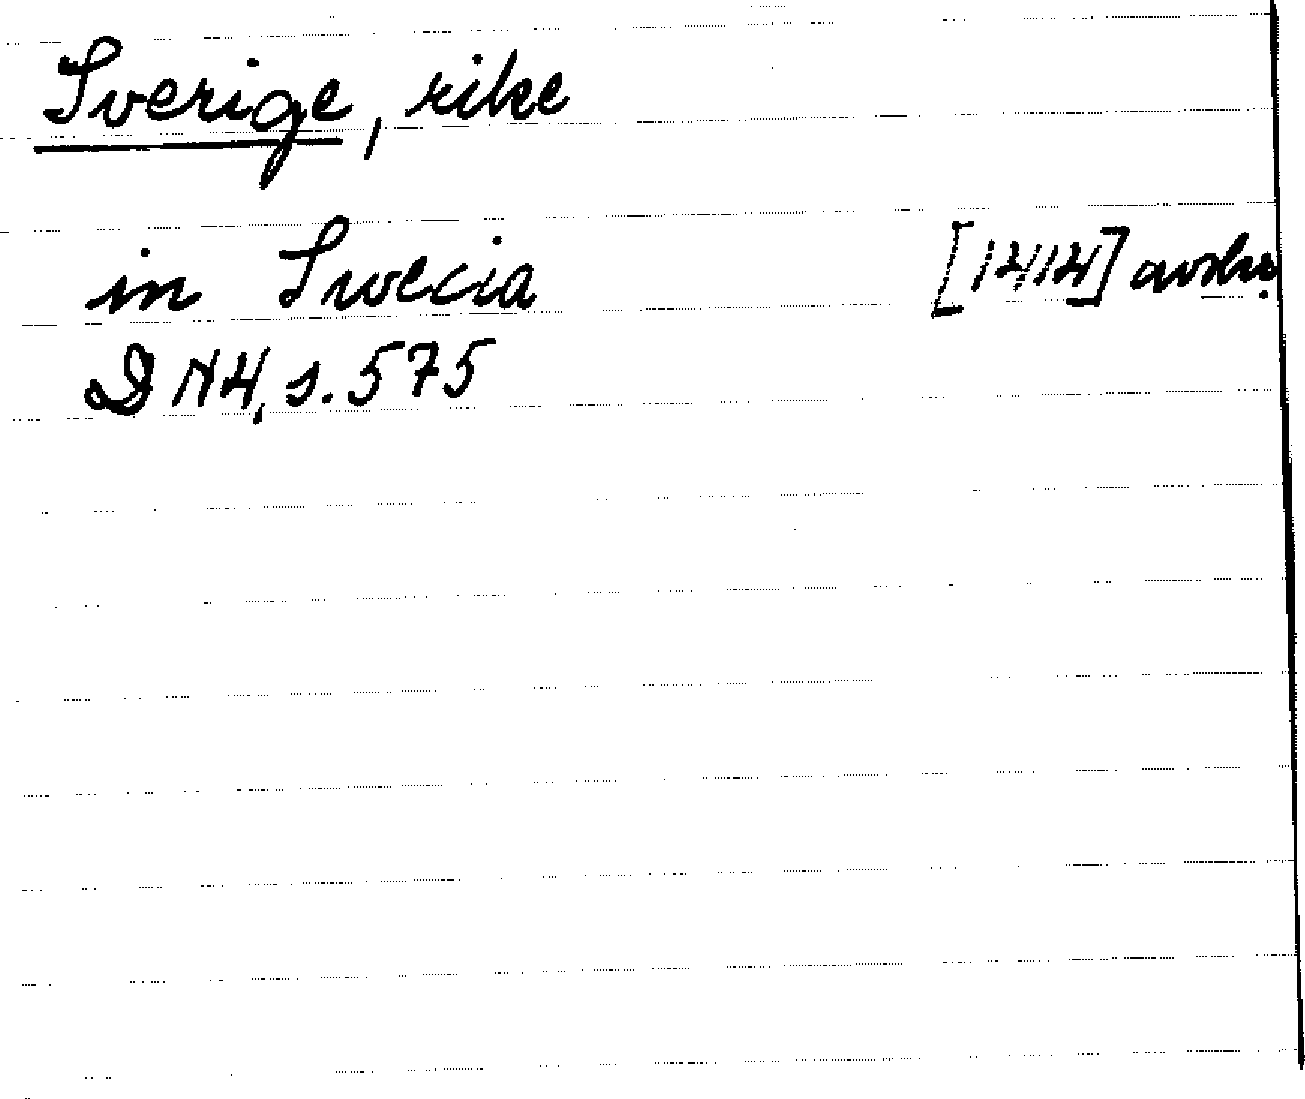 Sverige, rike
in Swecia [1414] avskr.
DN4, s. 575